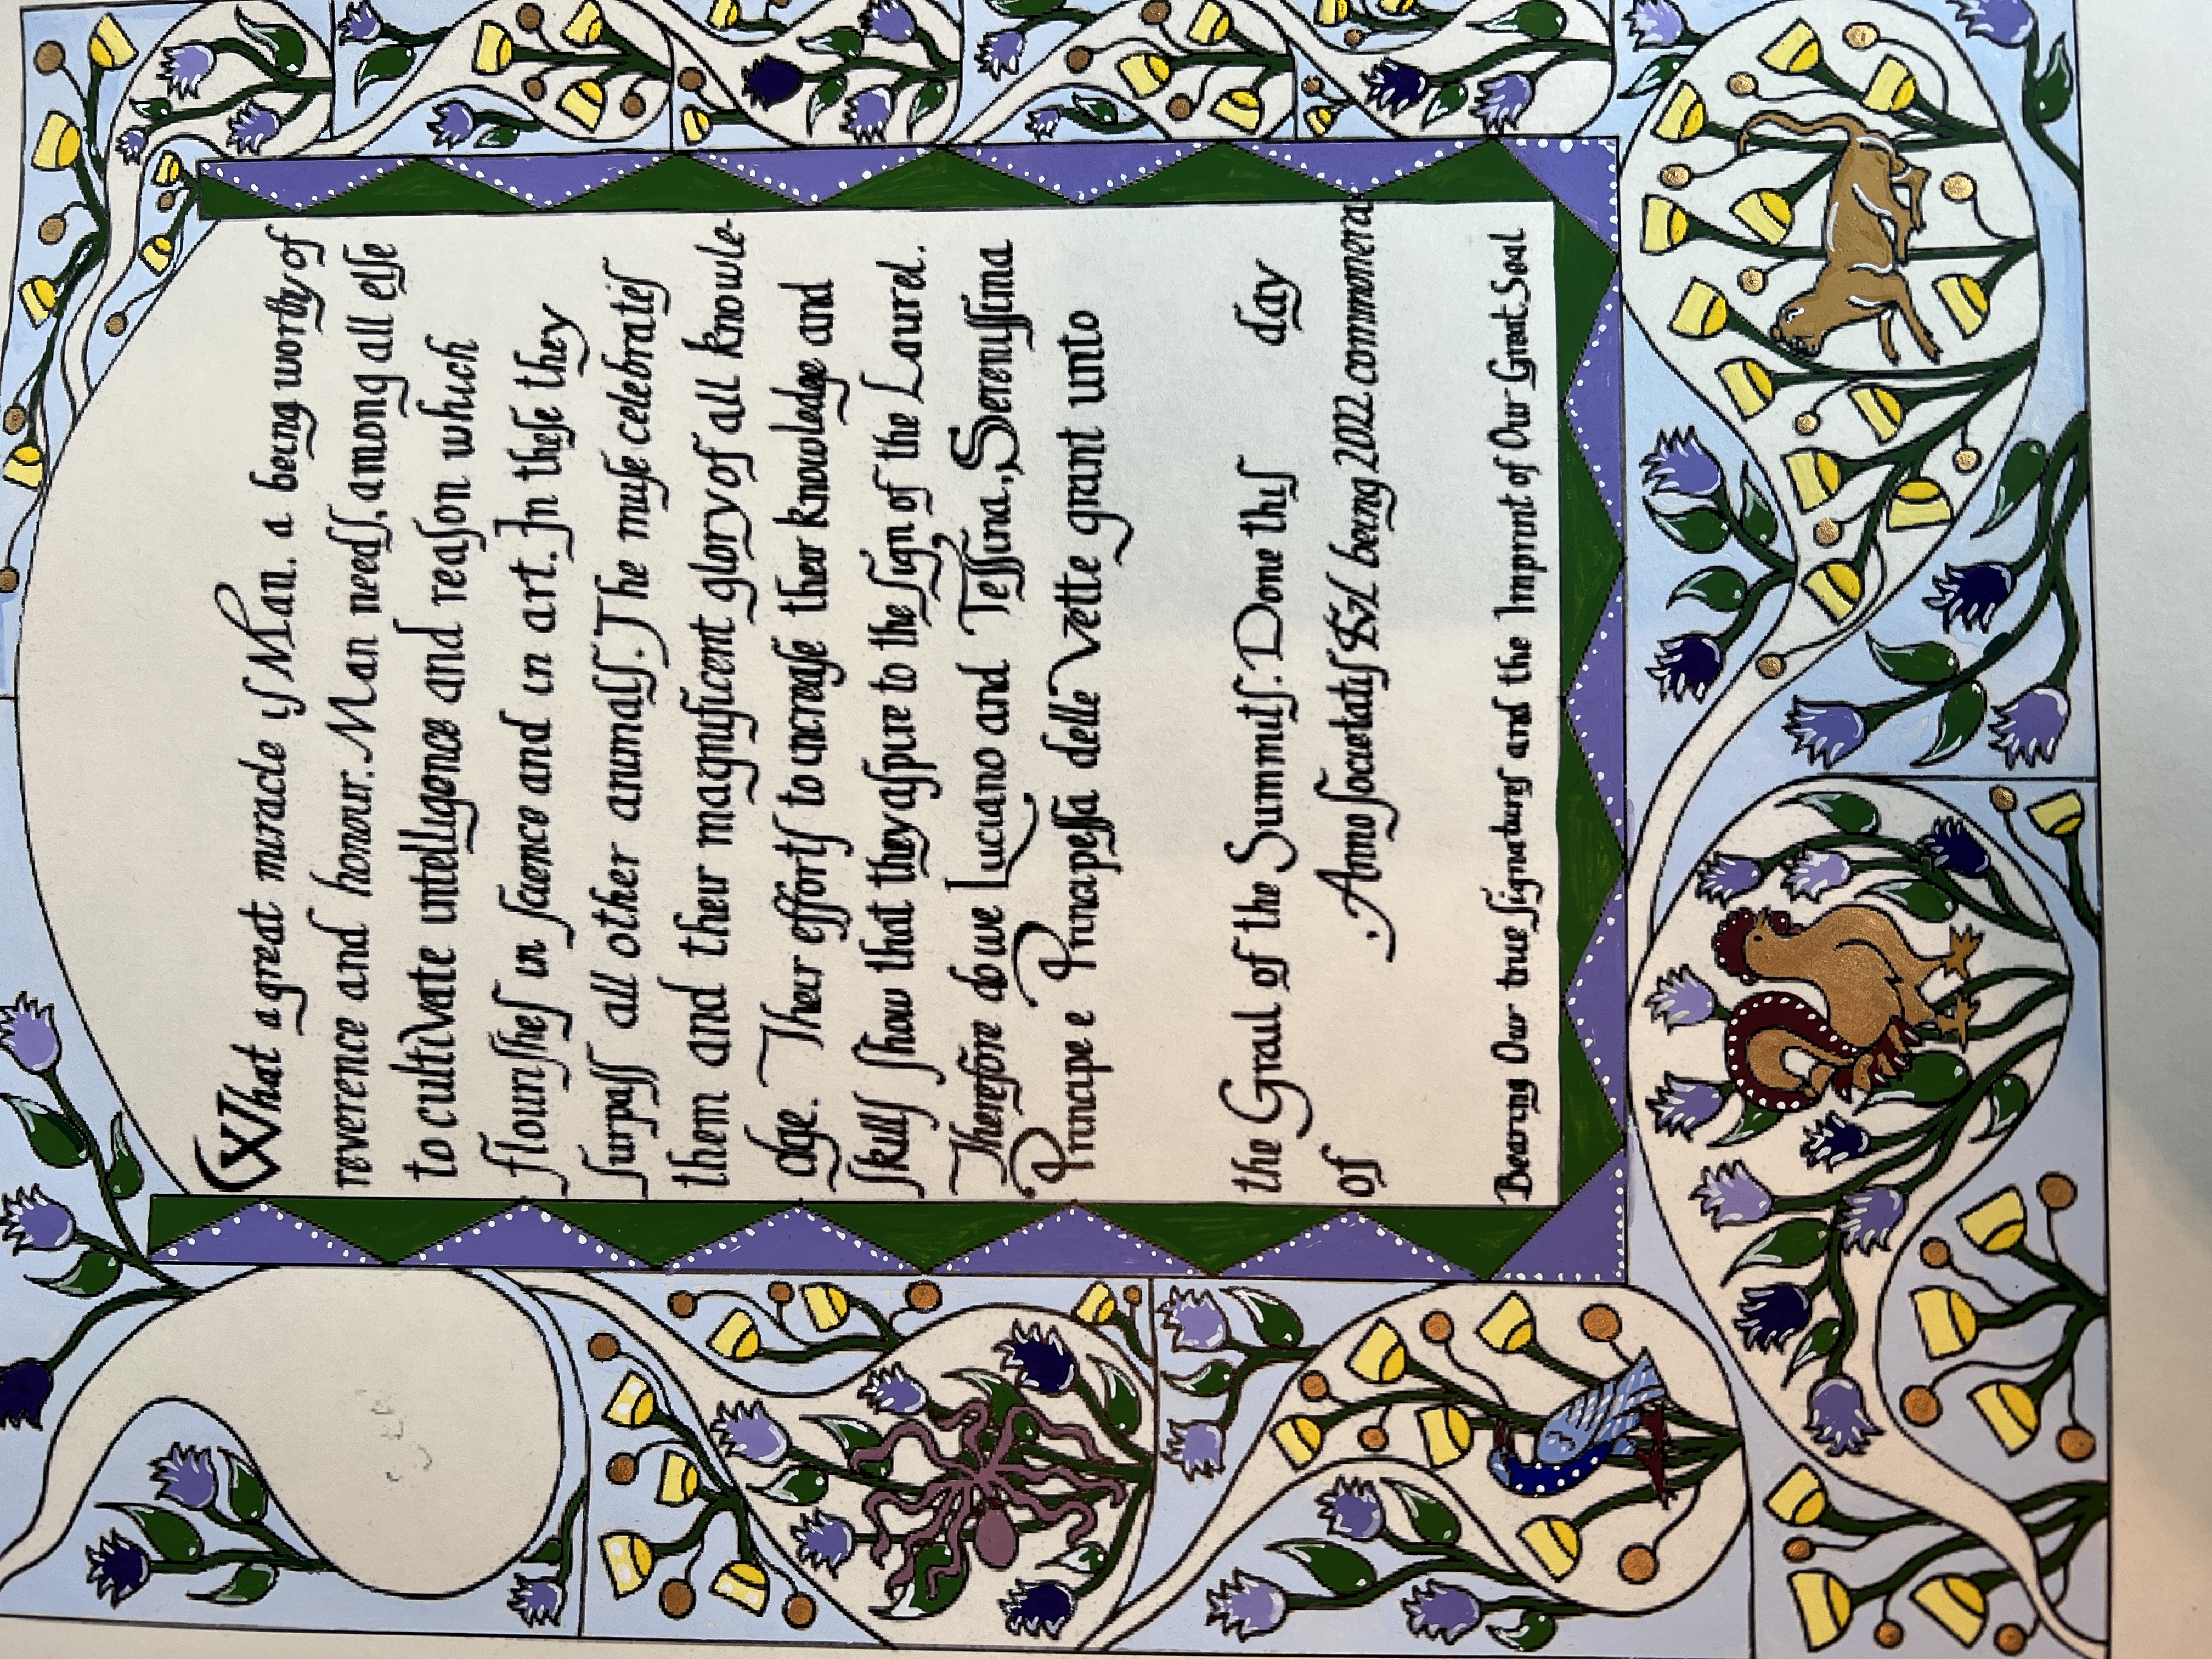 What a great miracle iſ Man. a being worthy of
reverence and honour. Man needſ, among all elſe
to cultivate intelligence and reaſon which
flouriſheſ in ſcience and in art. In theſe they
ſurpaſſ all other animalſ. The muſe celebrateſ
them and their magnificent glory of all knowle-
dge. Their effortſ to increaſe their knowledge and
ſkillſ ſhow that they aſpire to the ſign of the Laurel.
Therefore do we Luciano and Teſſina, Sereniſſima
Principe e Principeſſa delle Vette grant unto
the Grail of the Summitſ. Done thiſ day
of Anno ſocietatiſ being 2022 commmera
Bearing Our true ſignatureſ and the Imprint of Our Great Seal